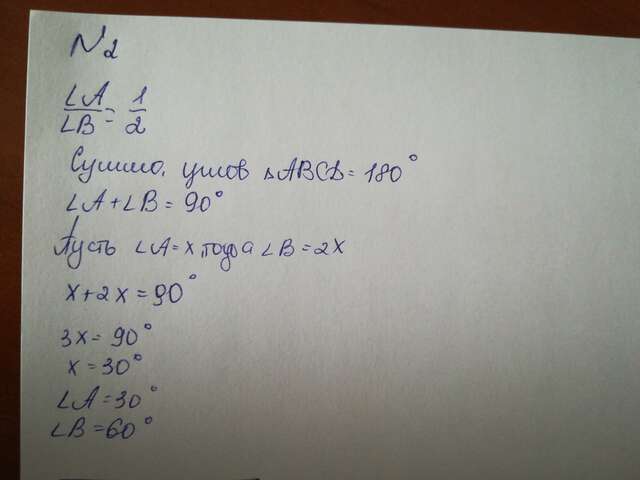 №2
∠A/∠B = 1/2
Сумма углов △ABCD = 180°
∠A+∠B = 90°
Пусть ∠A = x, тогда ∠B = 2x
x+2x = 90°
3x = 90°
x = 30°
∠A = 30°
∠B = 60°